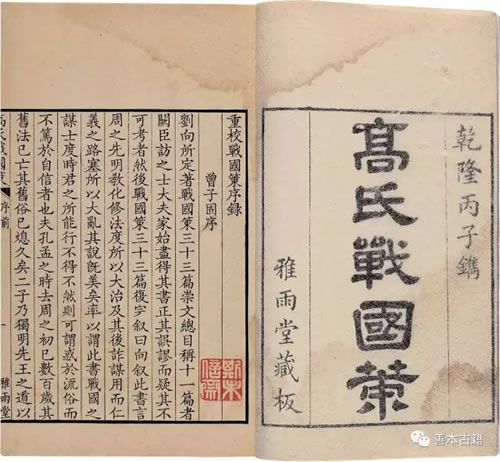 乾隆丙子鐫
高氏戰國策
雅雨堂藏板
重校戰國策序錄
曾子固序
劉向所定著戰國策三十三篇崇文總目稱十一篇者
闕臣訪之士大夫家始盡得其書正其誤謬而疑其不
可考者然後戰國策三十三篇復完叙曰向叙此書言
周之先明教化修法度所以大治及其後詐謀用而仁
義之路塞所以大亂其說旣美矣率以謂此書戰國之
謀士度時君之所能行不得不然則可謂惑於流俗而
不篤於自信者也夫孔孟之時去周之初已數百歲其
舊法已亡其舊俗已熄久矣二子乃獨明先王之道以
高氏戰國策 序前 一 雅雨堂
善本古籍